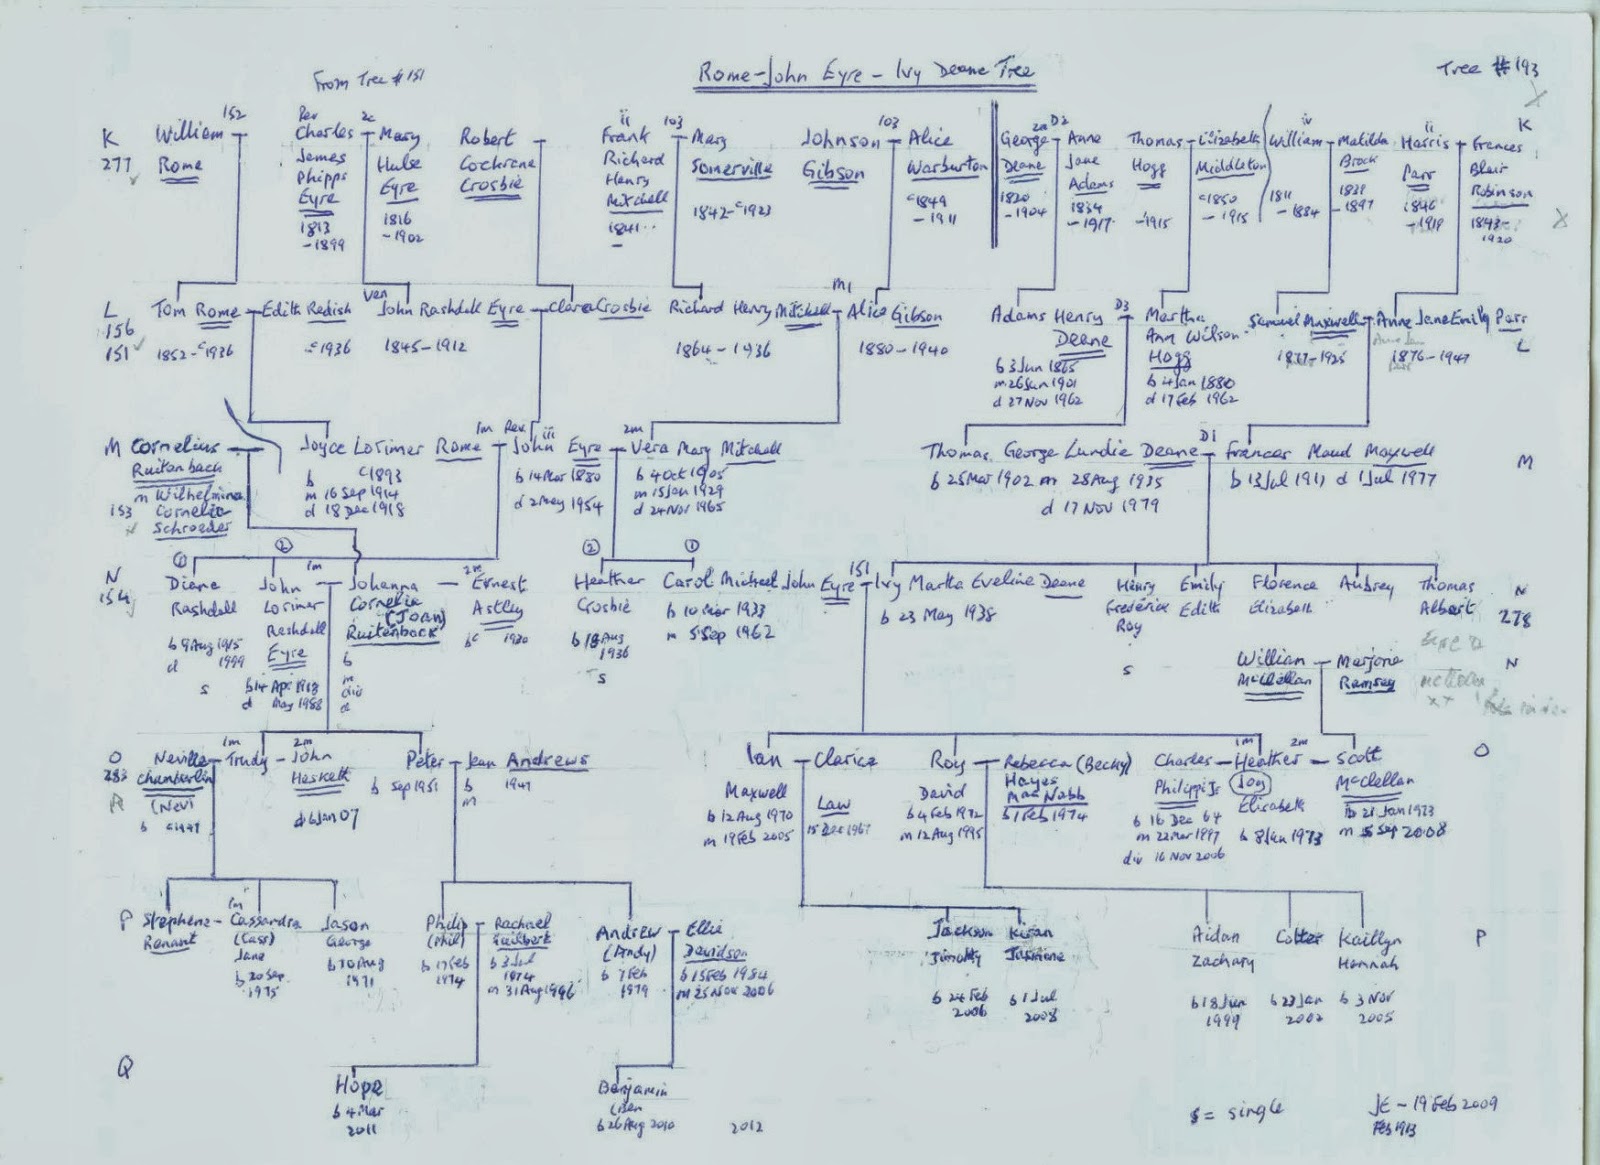 From Tree #151
Rome-John Eyre - Ivy Deane Tree
Tree #193
K
277
William
Rome
152
Rev
Charles
James
Phipps
Eyre
1813
-1899
2c
Mary
Hulse
Eyre
1816
-1902
Robert
Cochrane
Crosbie
ii
Frank
Richard
Henry
Mitchell
1841..
-
103
Mary
Somerville
1842-c1923
Johnson
Gibson
103
Alice
Warburton
c1849
-1911
George
Deane
1820
-1904
2a D2
Anne
Jane
Adams
1834
-1917
Thomas
Hogg
-1915
Elizabeth
Middleton
c1850
-1915
iv
William
1811
-1884
Matilda
Brock
-1897
ii
Harris
Parr
1846
-1919
Frances
Blair
Robinson
1843-
1920
K
X
X
L
156
151
Tom Rome
1852-c1936
Edith Redish
-c1936
Ven
John Rashdall Eyre
1845-1912
Clara Crosbie
Richard Henry Mitchell
1864-1936
m1
Alice Gibson
1880-1940
Adams Henry
Deane
b 3 Jun 1865
m 26 Jun 1901
d 27 Nov 1962
D3
Martha
Ann Wilson
Hogg
b 4 Jan 1880
d 17 Feb 1962
Samuel Maxwell
1877-1925
Anne Jane Emily Parr
1876-1947
L
M
153
Cornelius
Ruitenback
m Wilhelmina
Cornelia
Schroeder
Joyce Lorimer Rome
b c1893
m 16 Sep 1914
d 18 Dec 1918
1m
Rev iii
John Eyre
b 14 Mar 1880
d 2 May 1954
2m
Vera Mary Mitchell
b 4 Oct 1905
m 15 Jan 1929
d 24 Nov 1965
Thomas George Lundie Deane
b 25 Mar 1902 m 28 Aug 1935
d 17 Nov 1979
D1
Frances Maud Maxwell
b 13 Jul 1911 d 1 Jul 1977
M
N
154
①
Diane
Rashdall
b 9 Aug 1915
d 1999
s
②
John
Lorimer
Rashdall
Eyre
d May 1988
1m
Johanna
Cornelia
(Joan)
Ruitenback
b
m
div
d
2m
Ernest
Astley
②
Heather
Crosbie
b 18 Aug
1936
s
①
Carol Michael John Eyre
b 10 Mar 1933
m 5 Sep 1962
151
Ivy Martha Eveline Deane
b 23 May 1938
Henry
Frederick
Roy
s
Emily
Edith
Florence
Elizabeth
Aubrey
Thomas
Albert
N
278
William
McClellan
Marjorie
Ramsay
N
O
283
A
Neville
Chamberlin
(Nev)
b c1947
1m
Trudy
2m
John
Heskett
d 6 Jan 07
Peter
b Sep 1951
Jean Andrews
b 1947
m
Ian
Maxwell
b 12 Aug 1970
m 19 Feb 2005
Clarice
Law
15 Dec 1967
Roy
David
b 4 Feb 1972
m 12 Aug 1995
Rebecca (Becky)
Hayes
MacNabb
b 1 Feb 1974
Charles
Philippi Jr
b 16 Dec 64
m 22 Mar 1997
div 16 Nov 2006
1m
Heather
Joy
Elizabeth
b 8 Jan 1973
2m
Scott
McClellan
b 21 Jan 1973
m 5 Sep 2008
O
P
Stephene
Renant
1m
Cassandra
(Cass)
Jane
b 20 Sep
1975
Jason
George
b 30 Aug
1971
Philip
(Phil)
b 17 Feb
1974
Rachael
Guilbert
b 3 Jul
1974
m 31 Aug 1996
Andrew
(Andy)
b 7 Feb
1979
Ellie
Davidson
b 15 Feb 1984
m 25 Nov 2006
Jackson
Timothy
b 24 Feb
2006
Kiran
Jasmine
b 1 Jul
2008
Aidan
Zachary
b 18 Jun
1999
Colter
b 23 Jan
2002
Kaitlyn
Hannah
b 3 Nov
2005
P
Q
Hope
b 4 Mar
2011
Benjamin
(Ben
b 26 Aug 2010
2012
s = single
JE - 19 Feb 2009
Feb 1913